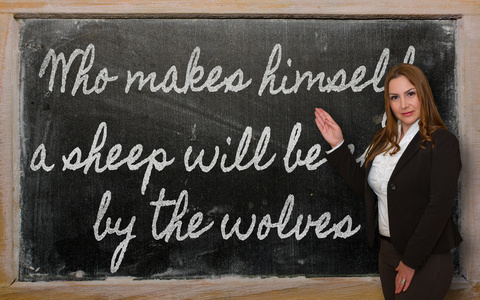 Who makes himself
a sheep will be
by the wolves